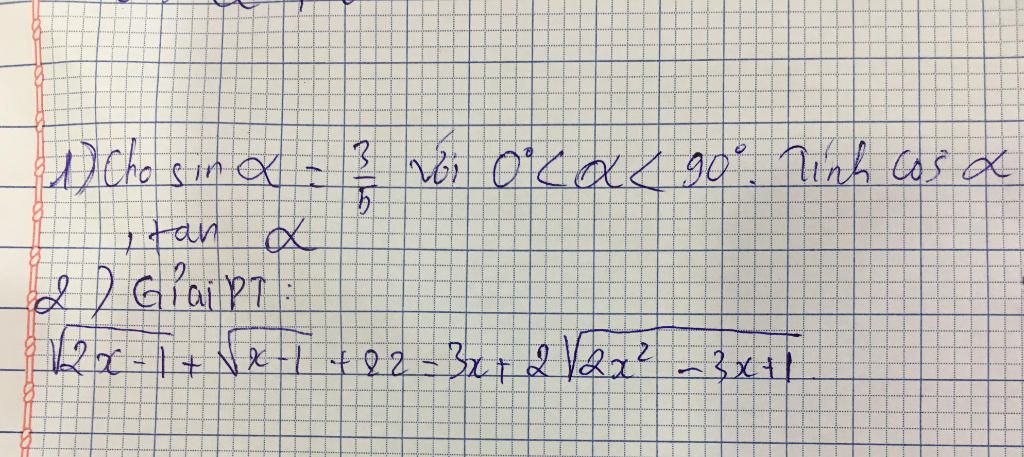 1) Cho sin α = 3/5 với 0° < α < 90°. Tính cos α
, tan α
2) Giải PT:
√(2x-1) + √(x-1) + 22 = 3x + 2√(2x² - 3x + 1)